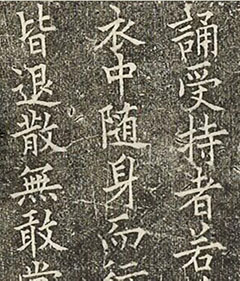 誦受持者若
衣中随身而行
皆退散無敢當